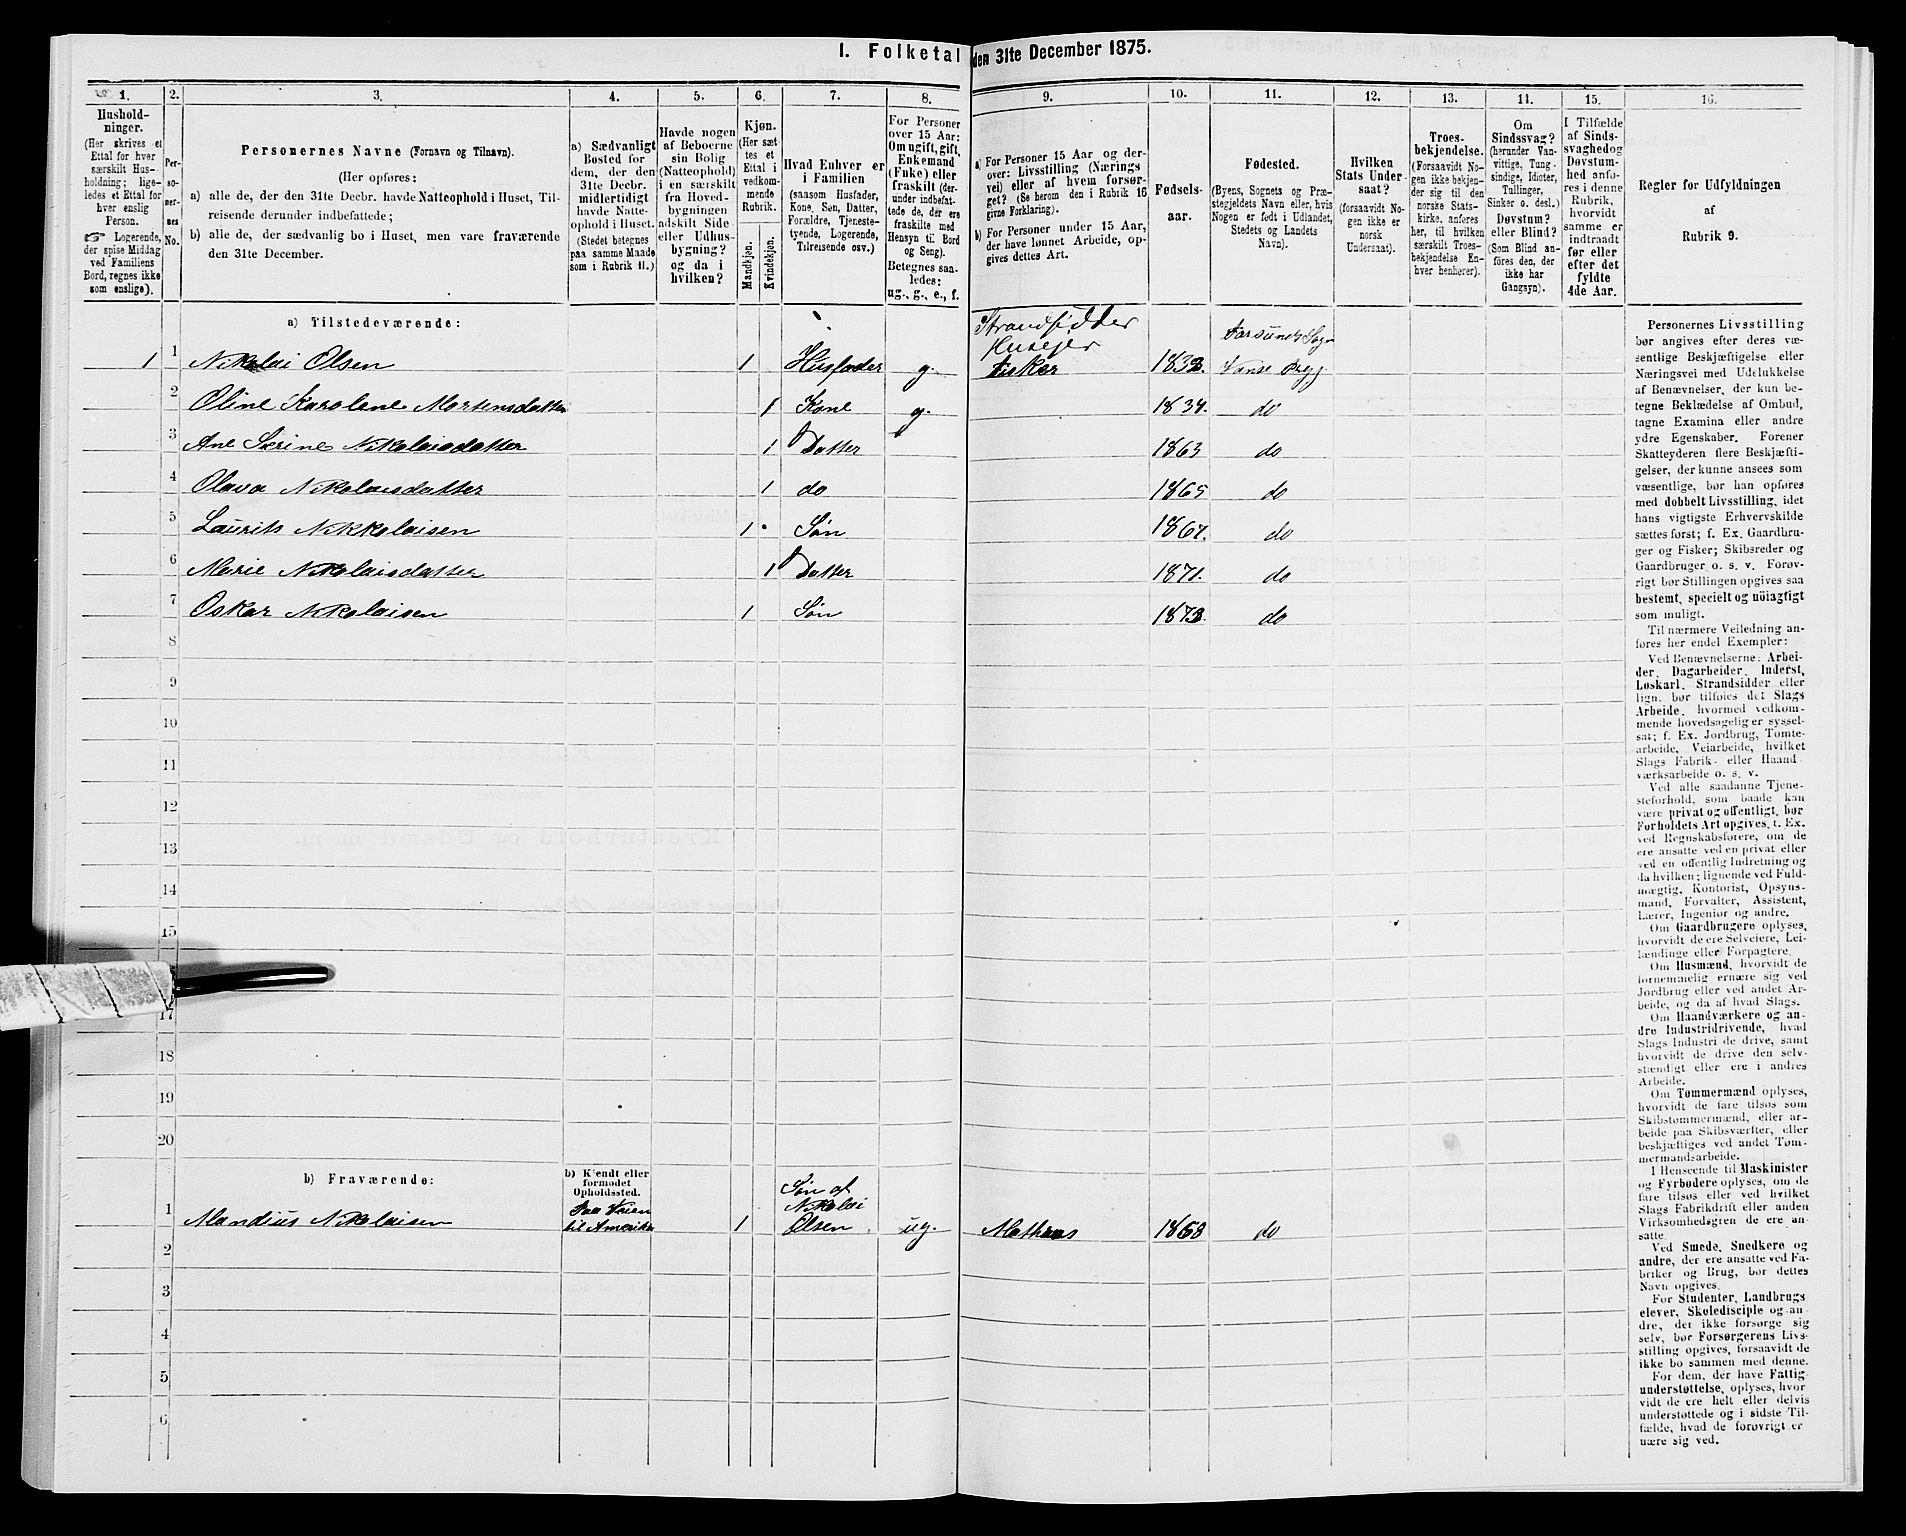 1. Folketal den 31te December 1875.
1. 2. 3. 4. 5. 6. 7. 8. 9. 10. 11. 12. 13. 14. 15. 16.
Hushold-
ninger.
(Her skrives et
Ettal for hver
særskilt Hus-
holdning; lige-
ledes et Ettal for
hver enslig
Person.
☞ Logerende,
der spise Middag
ved Familiens
Bord, regnes ikke
som enslige).
Per-
so-
ner-
nes
No.
Personernes Navne (Fornavn og Tilnavn).
(Her opføres:
a) alle de, der den 31te Decbr. havde Natteophold i Huset, Til-
reisende derunder indbefattede;
b) alle de, der sædvanlig bo i Huset, men vare fraværende
den 31te December.
a) Sædvanligt
Bosted for
dem, der den
31te Decbr.
midlertidigt
havde Natte-
ophold i Huset.
(Stedet betegnes
paa samme Maade
som i Rubrik 11.)
Havde nogen
af Beboerne
sin Bolig
(Natteophold)
i en særskilt
fra Hoved-
bygningen
adskilt Side-
eller Udhus-
bygning?
og da i
hvilken?
Kjøn.
(Her sæt-
tes et
Ettal i
vedkom-
mende
Rubrik.
Mandkjøn.
Kvindekjøn.
Hvad Enhver er
i Familien
(saasom Husfader,
Kone, Søn, Datter,
Forældre, Tjeneste-
tyende, Logerende,
Tilreisende osv.)
For Personer
over 15 Aar:
Om ugift, gift,
Enkemand
(Enke) eller
fraskilt (der-
under indbefat-
tede de, der ere
fraskilte med
Hensyn til Bord
og Seng).
Betegnes saa-
ledes:
ug., g., e., f.
a) For Personer 15 Aar og der-
over: Livsstilling (Nærings-
vei) eller af hvem forsør-
get? (Se herom den i Rubrik 16
givne Forklaring).
b) For Personer under 15 Aar,
der have lønnet Arbeide, op-
gives dettes Art.
Fødsels-
aar.
Fødested.
(Byens, Sognets og Præ-
stegjeldets Navn eller, hvis
Nogen er født i Udlandet,
Stedets og Landets
Navn).
Hvilken
Stats Under-
saat?
(forsaavidt No-
gen ikke er
norsk
Undersaat).
Troes-
bekjendelse.
(Forsaavidt No-
gen ikke bekjen-
der sig til den
norske Stats-
kirke, anføres
her, til hvilken
særskilt Troes-
bekjendelse En-
hver henhører).
Om
Sindssvag?
(herunder Van-
vittige, Tung-
sindige, Idioter,
Tullinger,
Sinker o. desl.)
Døvstum?
eller Blind?
(Som Blind an-
føres den, der
ikke har
Gangsyn).
I Tilfælde
af Sinds-
svaghed og
Døvstum-
hed anfø-
res i denne
Rubrik,
hvorvidt
samme er
indtraadt
før eller
efter det
fyldte
4de Aar.
Regler for Udfyldningen
af
Rubrik 9.
a) Tilstedeværende:
Strandsidder
Huseier
Farsunds Sogn
1 1 Nikolai Olsen 1 Husfader g. Fisker 1832. Vanse Prgj.
2 Oline Karolene Mortensdatter 1 Kone g. 1834. do
3 Ane Serine Nikolaisdatter 1 Datter 1863 do
4 Olava Nikolaisdatter 1 do 1865 do
5 Laurits Nikkolaisen 1 Søn 1867. do
6 Marie Nikolaisdatter 1 Datter 1871. do
7 Oskar Nikolaisen 1 Søn 1873. do
8
9
10
11
12
13
14
15
17
18
19
20
b) Fraværende:
b) Kjendt eller
formodet
Opholdssted.
Paa Veien
til Amerika
Søn af
Nikolai
Olsen
1 Mandius Nikolaisen 1 ug. Mathros 1858 do
2
3
4
5
6
Personernes Livsstilling
bør angives efter deres væ-
sentlige Beskjæftigelse eller
Næringsvei med Udelukkelse
af Benævnelser, der kun be-
tegne Beklædelse af Ombud,
tagne Examina eller andre
ydre Egenskaber. Forener
Skatteyderen flere Beskjæfti-
gelser, der kunne ansees som
væsentlige, bør han opføres
med dobbelt Livsstilling, idet
hans vigtigste Erhvervskilde
sættes først; f. Ex. Gaardbru-
ger og Fisker; Skibsreder og
Gaardbruger o. s. v. Forøv-
rigt bør Stillingen opgives saa
bestemt, specielt og nöiagtigt
som muligt.
Til nærmere Veiledning an-
føres her endel Exempler:
Ved Benævnelserne: Arbei-
der, Dagarbeider, Inderst,
Løskarl, Strandsidder eller
lign. bør tilføies det Slags
Arbeide, hvormed vedkom-
mende hovedsagelig er syssel-
sat; f. Ex. Jordbrug, Tomte-
arbeide, Veiarbeide, hvilket
Slags Fabrik- eller Haand-
værksarbeide o. s. v.
Ved alle saadanne Tjene-
steforhold, som baade kan
være privat og offentligt, bør
Forholdets Art opgives, t. Ex.
ved Regnskabsførere, om de
ere ansatte ved en privat eller
ved en offentlig Indretning og
da hvilken; lignende ved Fuld-
mægtig, Kontorist, Opsyns-
mand, Forvalter, Assistent,
Lærer, Ingeniør og andre.
Om Gaardbrugere oplyses,
hvorvidt de ere Selveiere, Lei-
lændinge eller Forpagtere.
Om Husmænd, hvorvidt de
fornemmelig ernære sig ved
Jordbrug eller ved andet Ar-
beide, og da af hvad Slags.
Om Haandværkere og an-
dre Industridrivende, hvad
Slags Industri de drive, samt
hvorvidt de drive den selv-
stændigt eller ere i andres
Arbeide.
Om Tømmermænd oplyses,
hvorvidt de fare tilsøs som
Skibstømmermænd, eller ar-
beide paa Skibsværfter, eller
beskjæftiges ved andet Tøm-
mermandsarbeide.
I Henseende til Maskinister
og Fyrbødere oplyses, om de
fare tilsøs eller ved hvilket
Slags Fabrikdrift eller anden
Virksomhedsgren de ere an-
satte.
Ved Smede, Snedkere og
andre, der ere ansatte ved Fa-
briker og Brug, bør dettes
Navn opgives.
For Studenter, Landbrugs-
elever, Skoledisciple og an-
dre, der ikke forsørge sig
selv, bør Forsørgerens Livs-
stilling opgives, forsaavidt de
ikke bo sammen med denne.
For dem, der have Fattig-
understøttelse, oplyses, hvor-
vidt de ere helt eller delvis
understøttede og i sidste Til-
fælde, hvad de forøvrigt er-
nære sig ved.